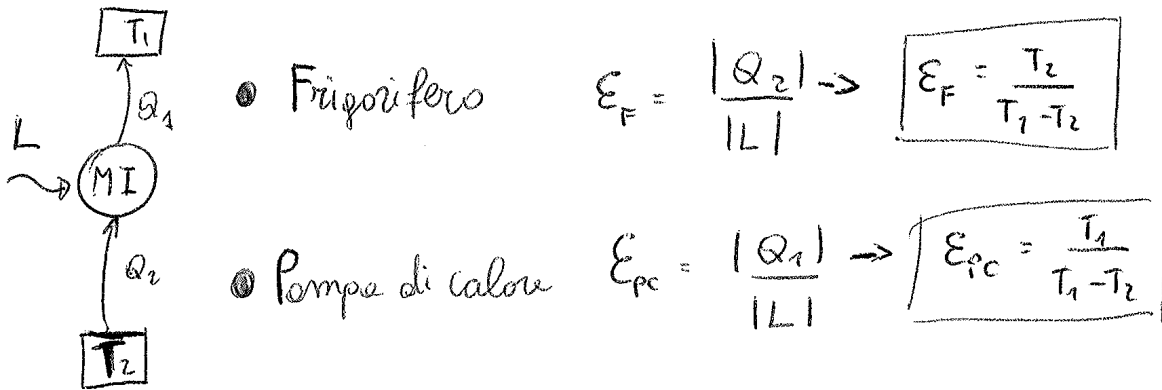 T₁
Q₁
L
MI
Q₂
T₂
• Frigorifero ε_F = |Q₂| / |L| → ε_F = T₂ / (T₁ - T₂)
• Pompa di calore ε_PC = |Q₁| / |L| → ε_PC = T₁ / (T₁ - T₂)